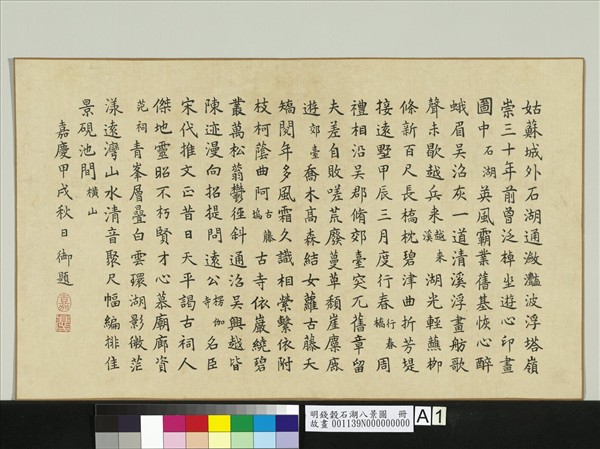 姑蘇城外石湖通瀲灩波浮塔嶺
崇三十年前曾泛棹坐遊心印畫
圖中石湖英風霸業舊基恢心醉
蛾眉吳沼灰一道清溪浮畫舫歌
聲未歇越兵來越來溪湖光輕蘸柳
條新百尺長橋枕碧津曲折芳堤
接遠墅甲辰三月度行春行春橋周
禮相沿吳郡脩郊臺突兀舊章留
夫差自敗嗟荒廢蔓草頹崖麋鹿
遊郊臺喬木高森結女蘿古藤夭
矯閱年多風霜久識相縈繫依附
枝柯蔭曲阿古藤塢古寺依巖繞碧
叢萬松蓊鬱徑斜通沼吳興越皆
陳迹漫向招提問遠公楞伽寺名臣
宋代推文正昔日天平謁古祠人
傑地靈昭不朽賢才心慕廟廊資
范祠青峯層疊白雲環湖影微茫
漾遠灣山水清音聚尺幅編排佳
景硯池間橫山
嘉慶甲戌秋日御題
明錢穀石湖八景圖 冊
故畫 001139N000000000
A 1